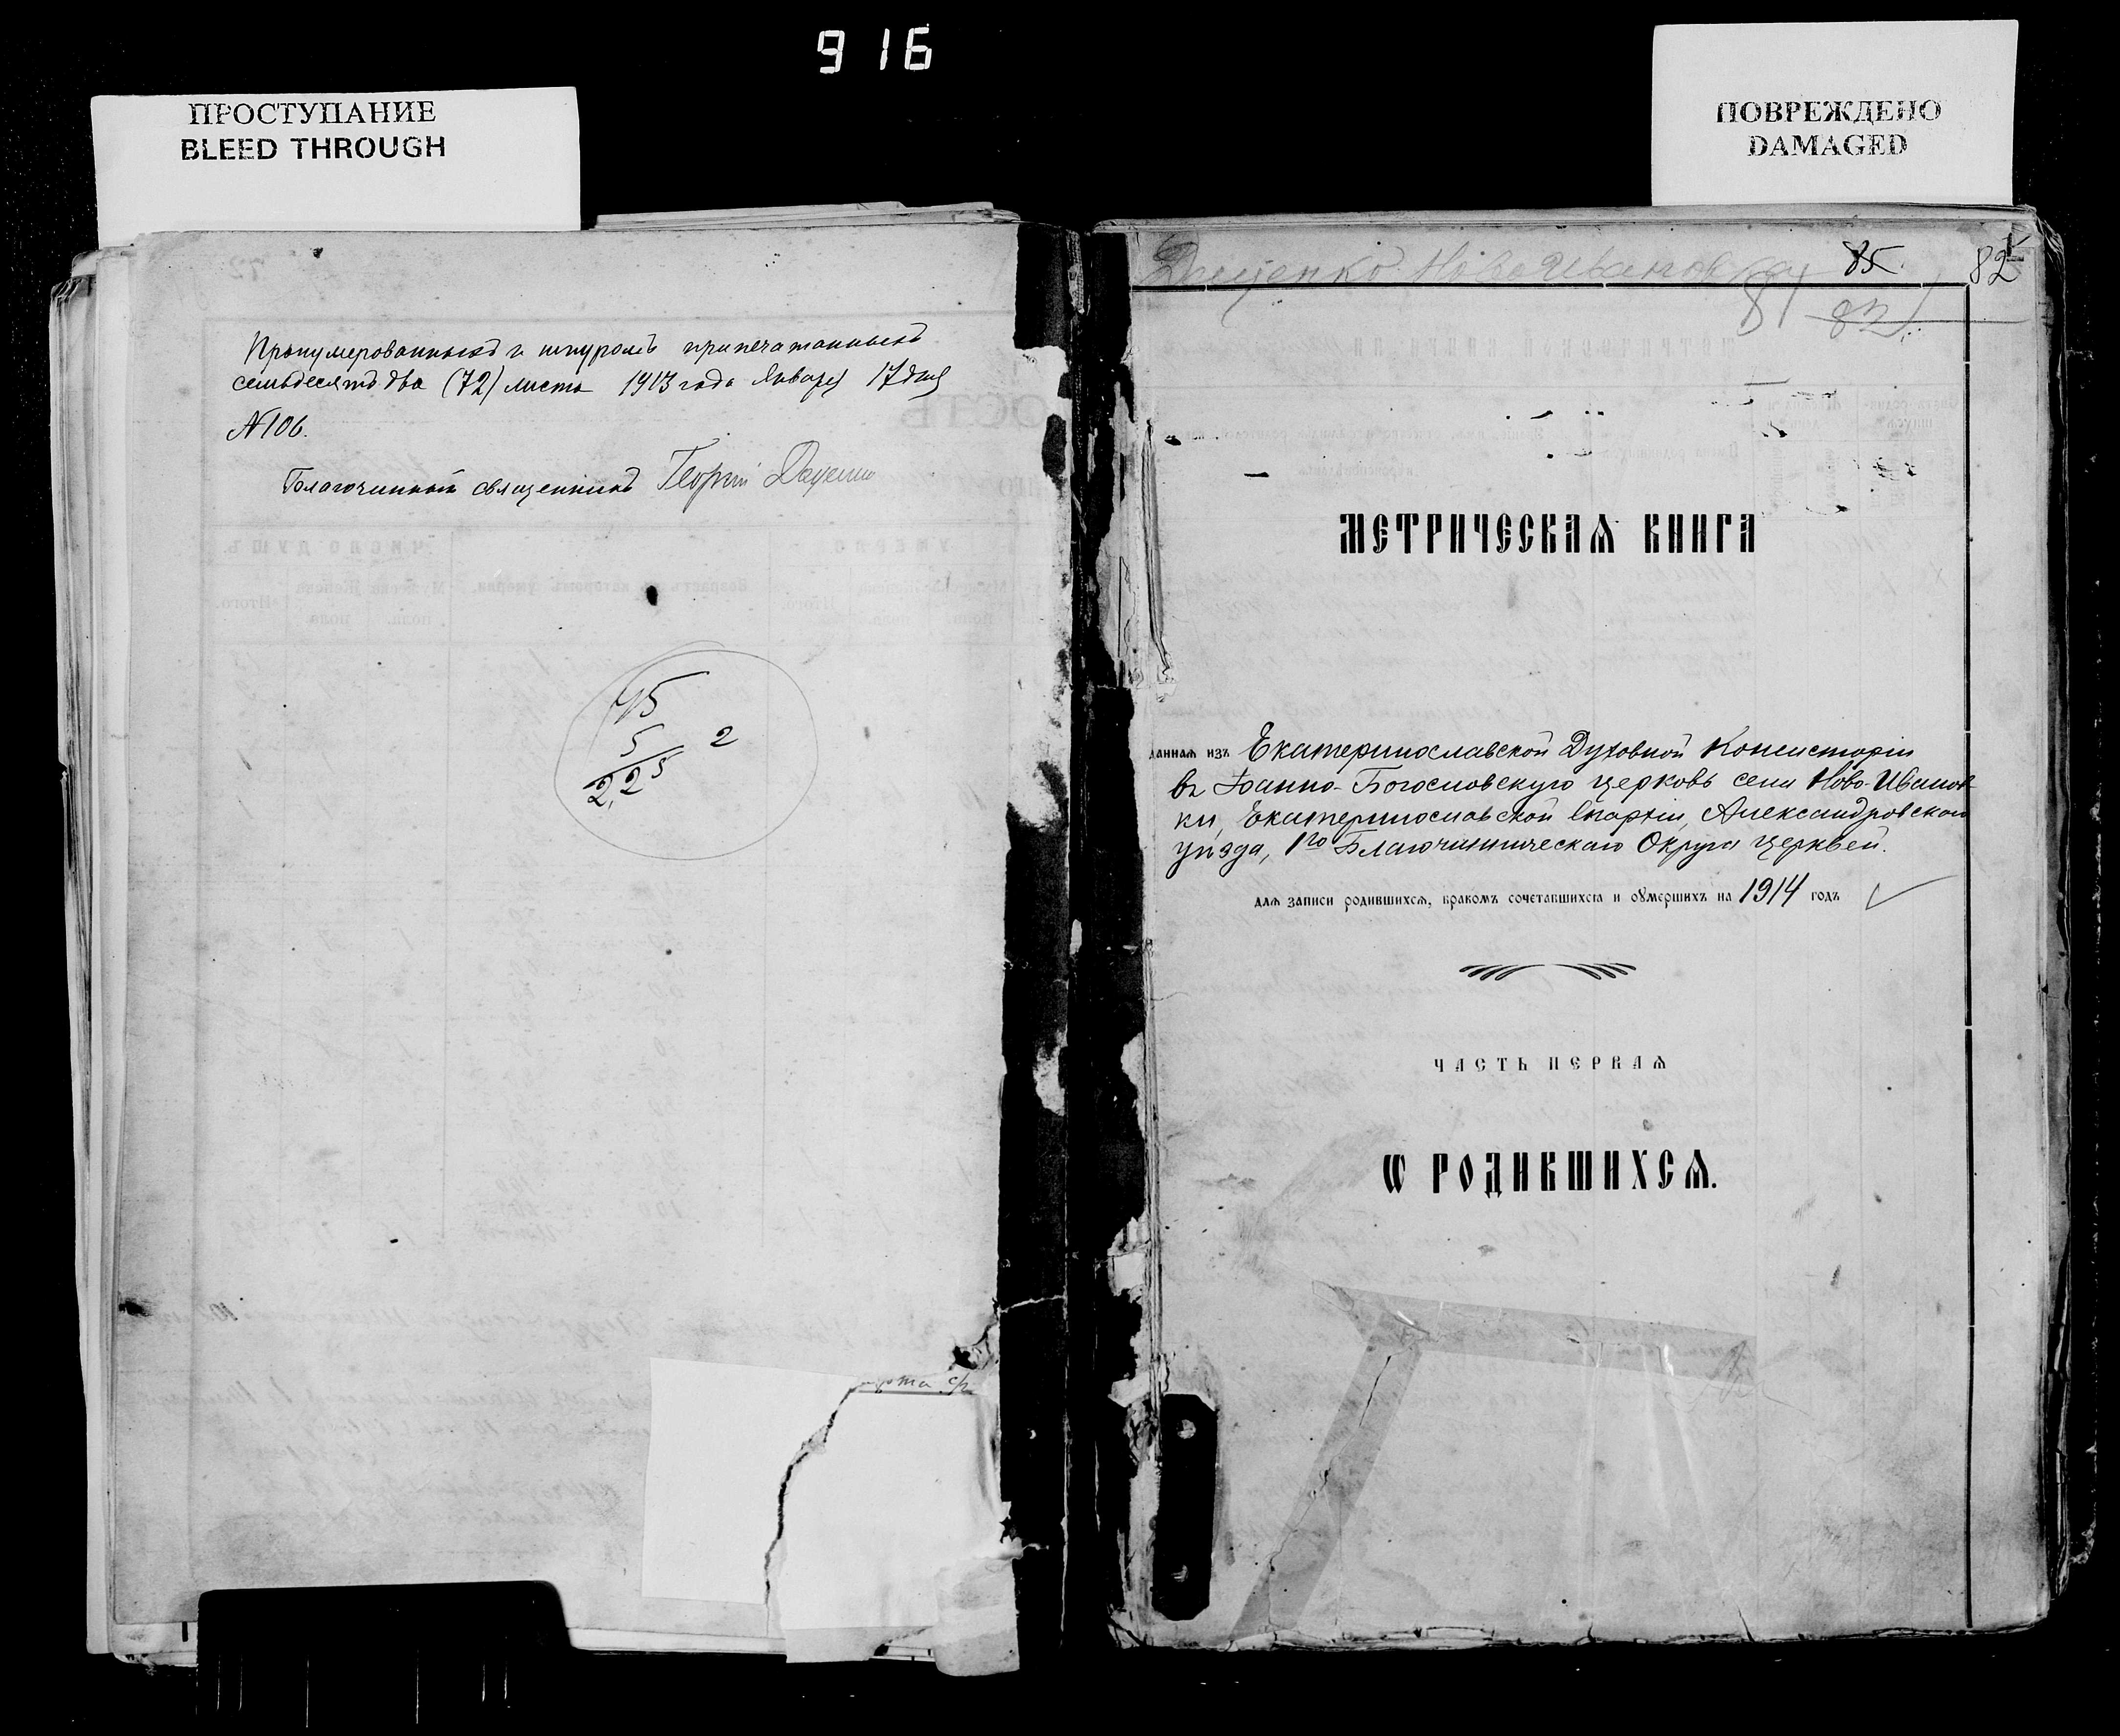 916
ПРОСТУПАНИЕ
BLEED THROUGH
ПОВРЕЖДЕНО
DAMAGED
Пронумерованныхъ и шнуромъ припечатанныхъ
семьдесятъ два (72) листа 1913 года Января 17 дня
№ 106.
Благочинный священникъ Георгій
45
5 2
2,25
Ново Ивановка 85. 82
81 82
МЕТРИЧЕСКАѦ КНИГА
даннаѧ изъ Екатеринославской Духовной Консисторіи
въ Іоанно-Богословскую церковь села Ново-Иванов-
ки, Екатеринославской Епархіи, Александровскаго
уѣзда, 1го Благочинническаго Округа церквей.
длѧ записи родившихсѧ, бракомъ сочетавшихсѧ и оумершихъ на 1914 годъ
ЧАСТЬ ПЕРВАѦ
Ѡ РОДИВШИХСѦ.